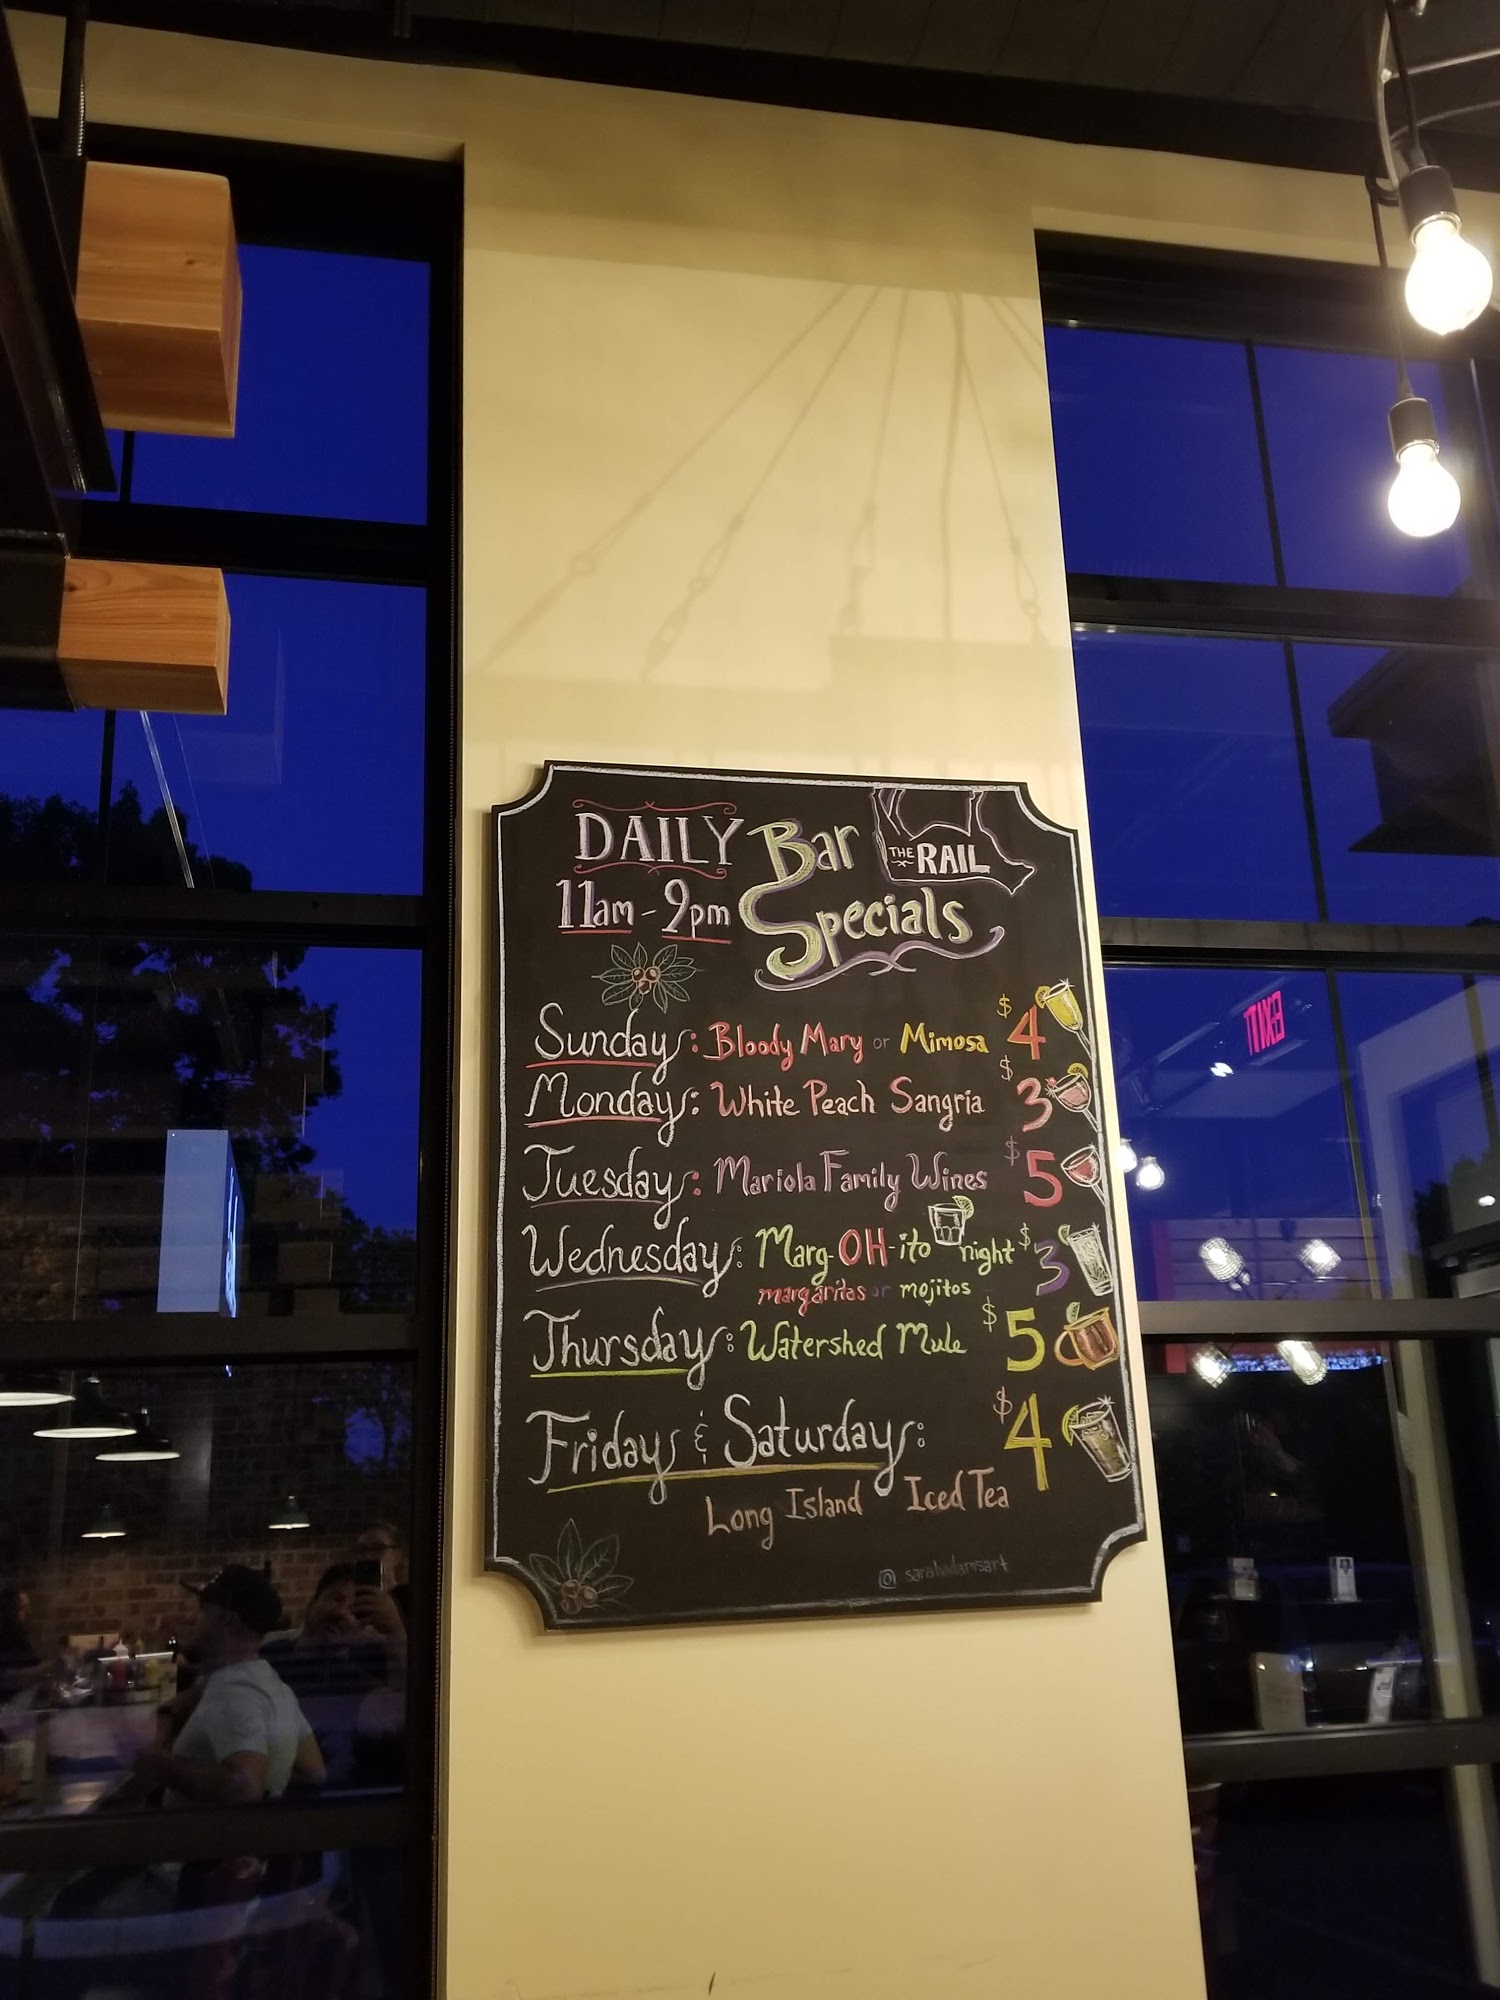 DAILY Bar Specials
11am - 9pm
THE RAIL
Sundays: Bloody Mary or Mimosa $4
Mondays: White Peach Sangria $3
Tuesdays: Mariola Family Wines $5
Wednesdays: Marg-OH-ito night $3
margaritas or mojitos
Thursdays: Watershed Mule $5
Fridays & Saturdays: $4
Long Island Iced Tea
@sarahadamsart
EXIT